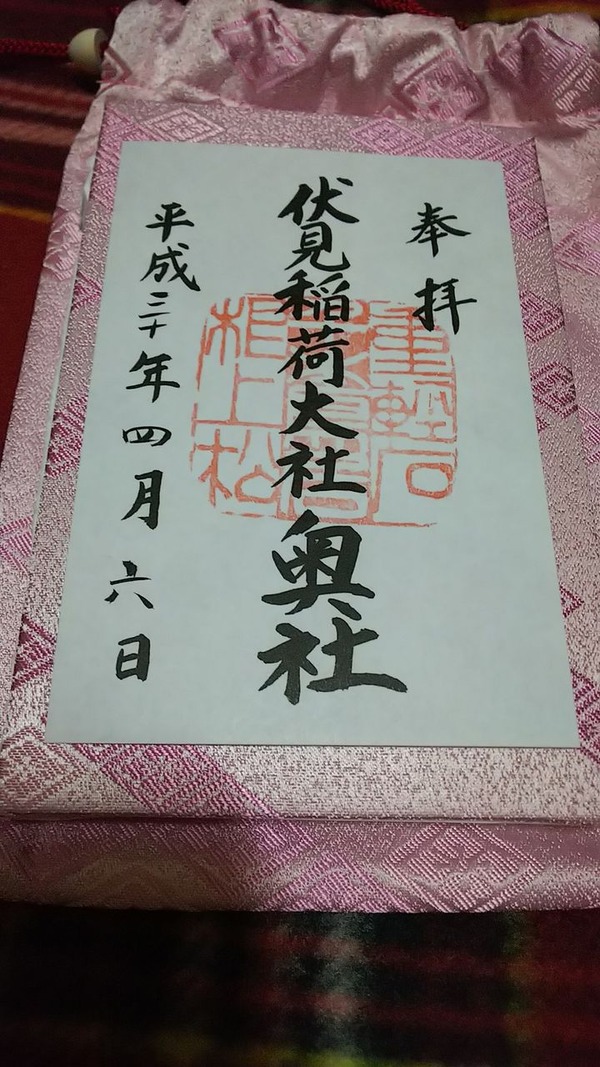 奉拝
伏見稲荷大社奥社
平成三十年四月六日